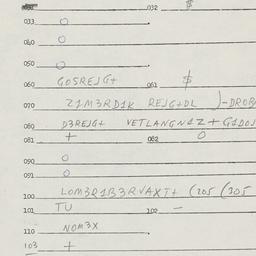 032 $
033 0
040 0
050 0
060 GOSREJG+ 061 $
070 Z1M3RD1K REJG+DL )-DROB
080 D3REJG+ VETLANGN1Z + G1DOJ
081 + 082 0
090 0
091 0
100 LOM3R1B3RVAXT+ (205 (305
101 TU 102 -
110 NOM3X
103 +